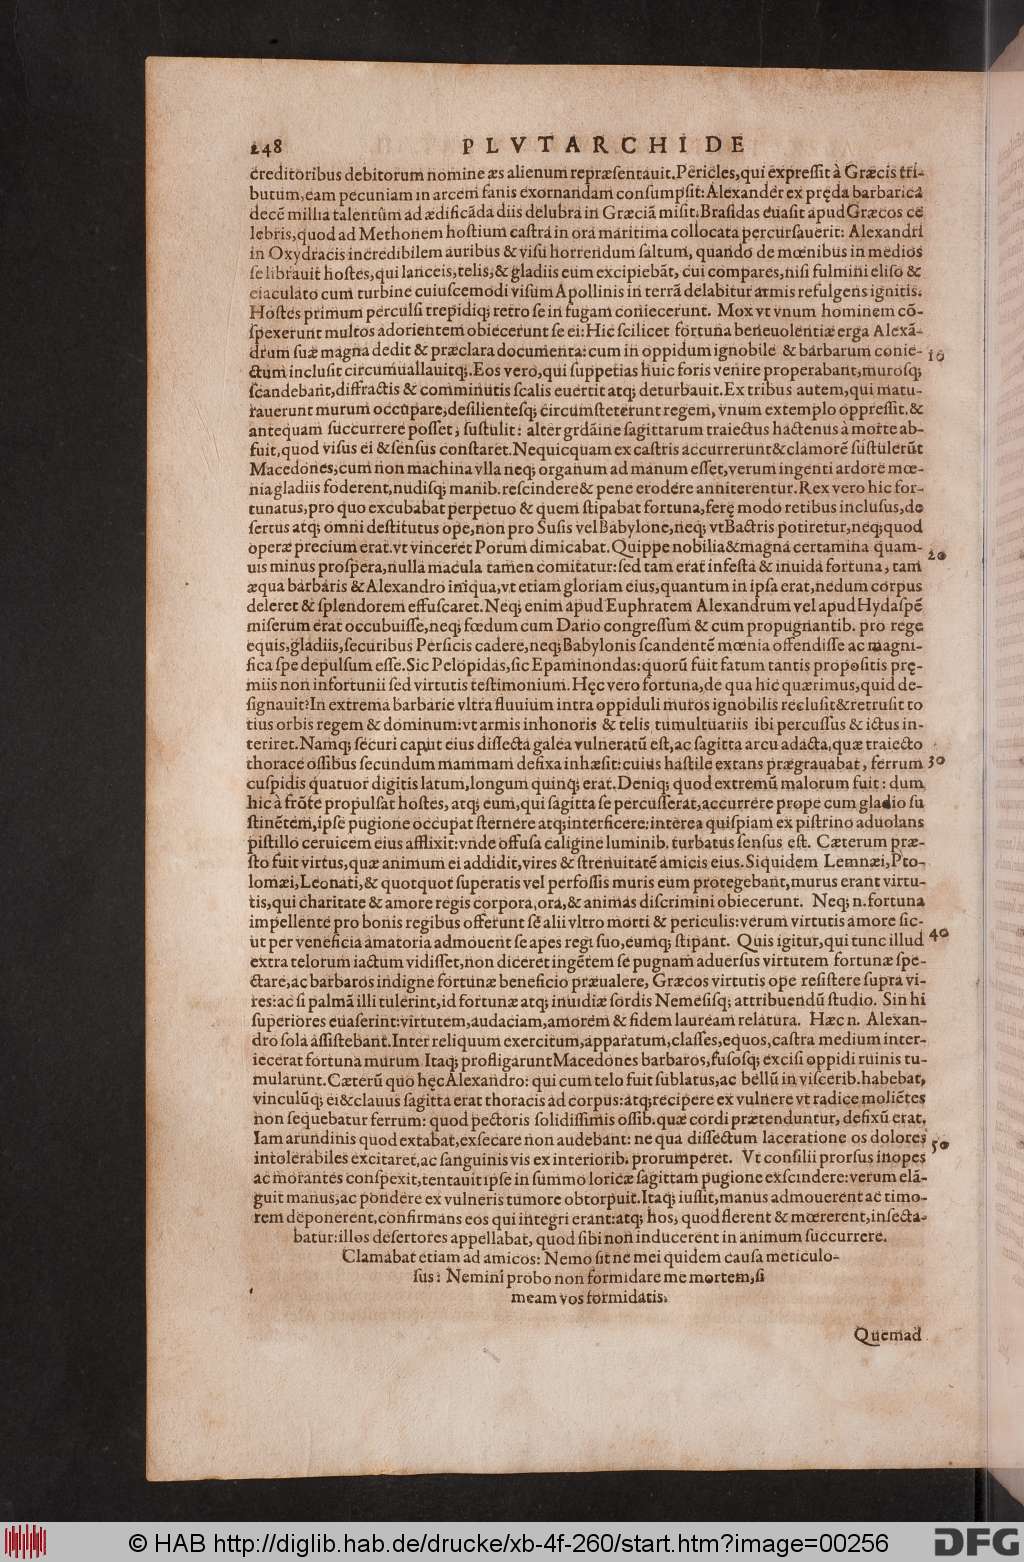 248 PLVTARCHI DE
creditoribus debitorum nomine æs alienum repræsentauit. Pericles, qui expressit à Græcis tri-
butum, eam pecuniam in arcem fanis exornandam consumpsit: Alexander ex pręda barbarica
decẽ millia talentûm ad ædificãda diis delubra in Græciã misit. Brasidas euasit apud Græcos ce
lebris, quod ad Methonem hostium castra in ora maritima collocata percursauerit: Alexandri
in Oxydracis incredibilem auribus & visu horrendum saltum, quando de mœnibus in medios
se librauit hostes, qui lanceis, telis, & gladiis eum excipiebãt, cui compares, nisi fulmini eliso &
eiaculato cum turbine cuiuscemodi visum Apollinis in terrã delabitur armis refulgens ignitis.
Hostes primum perculsi trepidiq; retro se in fugam coniecerunt. Mox vt vnum hominem cõ-
spexerunt multos adorientem obiecerunt se ei: Hic scilicet fortuna beneuolentiæ erga Alexã-
drum suæ magna dedit & præclara documenta: cum in oppidum ignobile & barbarum conie- 10
ctum inclusit circumuallauitq;. Eos vero, qui suppetias huic foris venire properabant, murosq;
scandebant, diffractis & comminutis scalis euertit atq; deturbauit. Ex tribus autem, qui matu-
rauerunt murum occupare, desilientesq; circumsteterunt regem, vnum extemplo oppressit, &
antequam succurrere posset, sustulit: alter grdãine sagittarum traiectus hactenus à morte ab-
fuit, quod visus ei & sensus constaret. Nequicquam ex castris accurrerunt & clamorẽ sustulerũt
Macedones, cum non machina vlla neq; organum ad manum esset, verum ingenti ardore mœ-
nia gladiis foderent, nudisq; manib. rescindere & pene erodere anniterentur. Rex vero hic for-
tunatus, pro quo excubabat perpetuo & quem stipabat fortuna, ferę modo retibus inclusus, de
sertus atq; omni destitutus ope, non pro Susis vel Babylone, neq; vt Bactris potiretur, neq; quod
operæ precium erat. vt vinceret Porum dimicabat. Quippe nobilia & magna certamina quam-
uis minus prospera, nulla macula tamen comitatur: sed tam erat infesta & inuida fortuna, tam 20
æqua barbaris & Alexandro iniqua, vt etiam gloriam eius, quantum in ipsa erat, nedum corpus
deleret & splendorem effuscaret. Neq; enim apud Euphratem Alexandrum vel apud Hydaspẽ
miserum erat occubuisse, neq; fœdum cum Dario congressum & cum propugnantib. pro rege
equis, gladiis, securibus Persicis cadere, neq; Babylonis scandentẽ mœnia offendisse ac magni-
fica spe depulsum esse. Sic Pelopidas, sic Epaminondas: quorũ fuit fatum tantis propositis prę-
miis non infortunii sed virtutis testimonium. Hęc vero fortuna, de qua hic quærimus, quid de-
signauit? In extrema barbarie vltra fluuium intra oppiduli muros ignobilis reclusit & retrusit to
tius orbis regem & dominum: vt armis inhonoris & telis tumultuariis ibi percussus & ictus in-
teriret. Namq; securi caput eius dissecta galea vulneratũ est, ac sagitta arcu adacta, quæ traiecto
thorace ossibus secundum mammam defixa inhæsit: cuius hastile extans prægrauabat, ferrum 30
cuspidis quatuor digitis latum, longum quinq; erat. Deniq; quod extremũ malorum fuit: dum
hic à frõte propulsat hostes, atq; eum, qui sagitta se percusserat, accurrere prope cum gladio su
stinẽtem, ipse pugione occupat sternere atq; interficere: interea quispiam ex pistrino aduolans
pistillo ceruicem eius afflixit: vnde offusa caligine luminib. turbatus sensus est. Cæterum præ-
sto fuit virtus, quæ animum ei addidit, vires & strenuitatẽ amicis eius. Siquidem Lemnæi, Pto-
lomæi, Leonati, & quotquot superatis vel perfossis muris eum protegebant, murus erant virtu-
tis, qui charitate & amore regis corpora, ora, & animas discrimini obiecerunt. Neq; n. fortuna
impellente pro bonis regibus offerunt sẽ alii vltro morti & periculis: verum virtutis amore sic-
ut per veneficia amatoria admouent se apes regi suo, eumq; stipant. Quis igitur, qui tunc illud 40
extra telorum iactum vidisset, non diceret ingẽtem se pugnam aduersus virtutem fortunæ spe-
ctare, ac barbaros indigne fortunæ beneficio præualere, Græcos virtutis ope resistere supra vi-
res: ac si palmã illi tulerint, id fortunæ atq; inuidiæ sordis Nemesisq; attribuendũ studio. Sin hi
superiores euaserint: virtutem, audaciam, amorem & fidem lauream relatura. Hæc n. Alexan-
dro sola assistebant. Inter reliquum exercitum, apparatum, classes, equos, castra medium inter-
iecerat fortuna murum Itaq; profligarunt Macedones barbaros, fusosq; excisi oppidi ruinis tu-
mularunt. Cæterũ quo hęc Alexandro: qui cum telo fuit sublatus, ac bellũ in viscerib. habebat,
vinculũq; ei & clauus sagitta erat thoracis ad corpus: atq; recipere ex vulnere vt radice moliẽtes
non sequebatur ferrum: quod pectoris solidissimis ossib. quæ cordi prætenduntur, defixũ erat.
Iam arundinis quod extabat, exsecare non audebant: ne qua dissectum laceratione os dolores 50
intolerabiles excitaret, ac sanguinis vis ex interiorib. prorumperet. Vt consilii prorsus inopes
ac morantes conspexit, tentauit ipse in summo loricæ sagittam pugione exscindere: verum elã-
guit manus, ac pondere ex vulneris tumore obtorpuit. Itaq; iussit, manus admouerent ac timo-
rem deponerent, confirmans eos qui integri erant: atq; hos, quod flerent & mœrerent, insecta-
batur: illos desertores appellabat, quod sibi non inducerent in animum succurrere.
Clamabat etiam ad amicos: Nemo sit ne mei quidem causa meticulo-
sus: Nemini probo non formidare me mortem, si
meam vos formidatis.
Quemad
© HAB http://diglib.hab.de/drucke/xb-4f-260/start.htm?image=00256
DFG